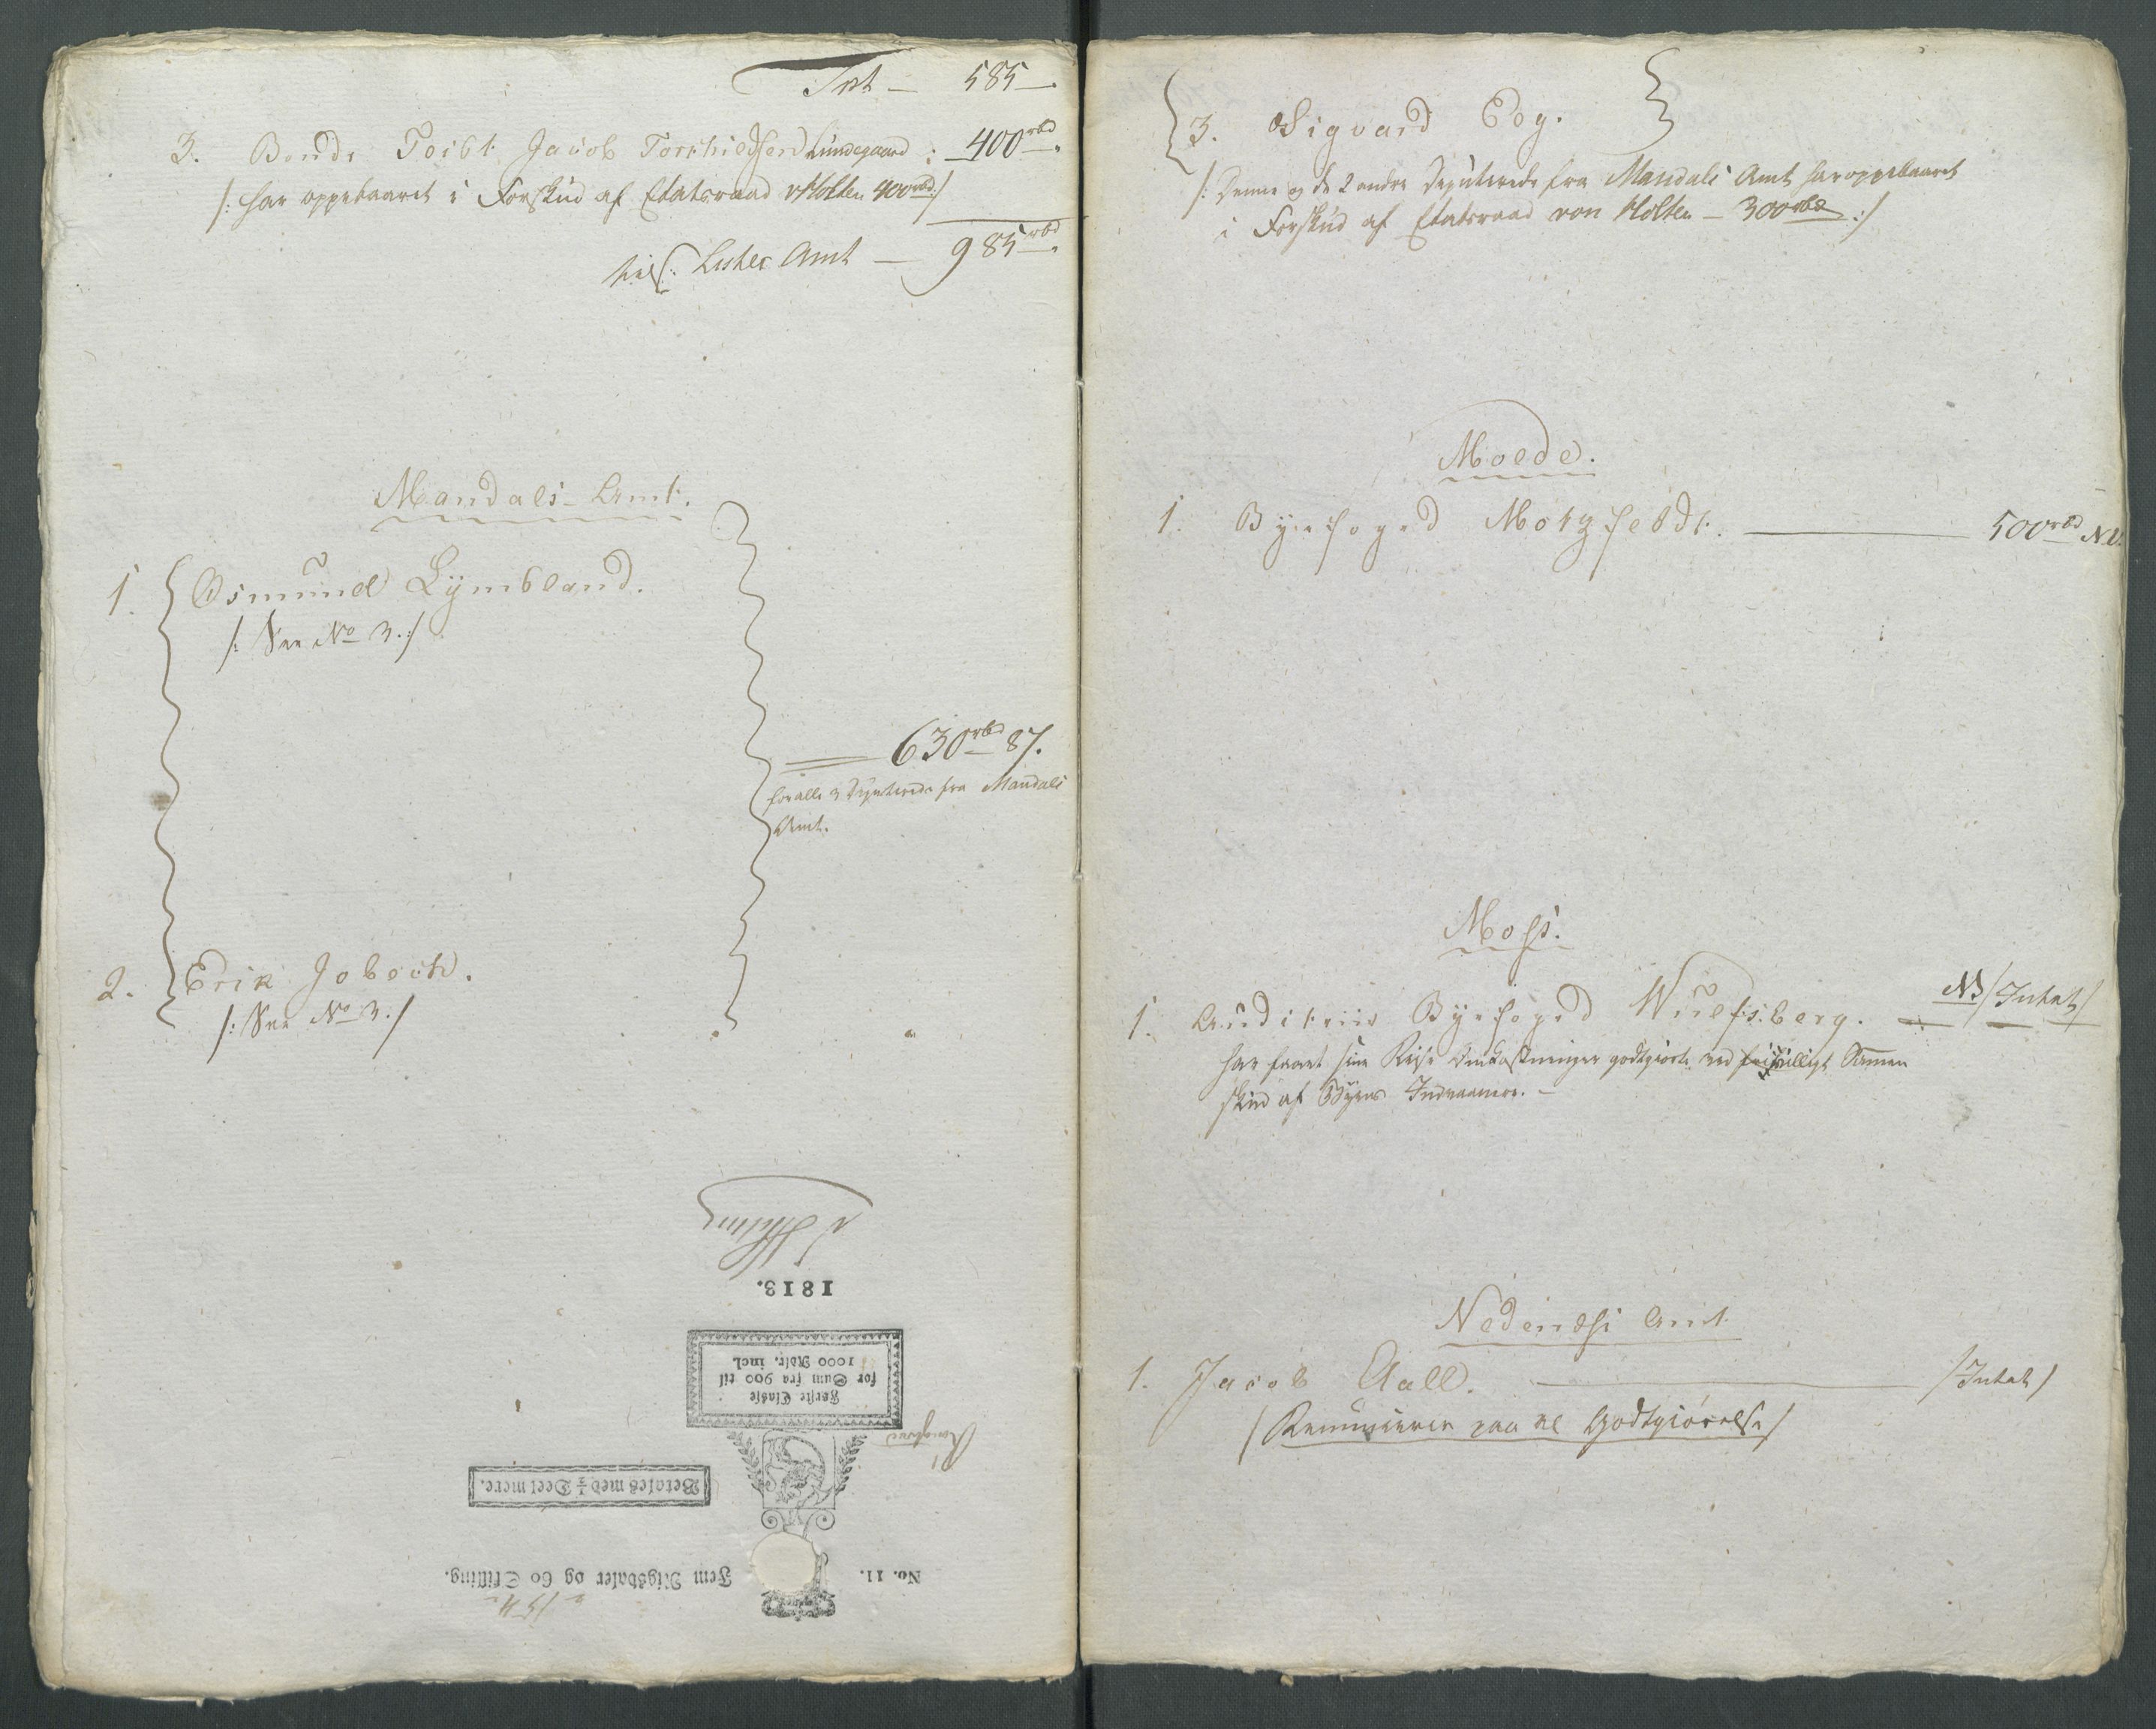 Trt – 585 –
3. Bonde Tolbt. Jacob Torchieldsen Lundegaard : 400 rbd
/: har oppebaaret i Forskud af Etatsraad v Holten 400 rbd :/
Lister Amt — 985 rbd
Mandals Amt.
1. Osmund Lymbland.
/: See No 3. :/
630 rbd 87.
for alle 3 Deputerede fra Mandals
Amt.
2. Erik Jobech.
/: See No 3. :/
1813.
Første Classe
for Sum fra 900 til
1000 Rdlr. incl.
Betales med ¼ Deel mere.
No. 11. Fem Rigsdaler og 60 Skilling.
3. Sigvard Eeg.
/: Denne og de 2 andre Deputerede fra Mandals Amt har oppebaaret
i Forskud af Etatsraad von Holten – 300 rbd :/
Molde.
1. Byefoged Motzfeldt. 500 rbd NV.
Moss.
1. Auditeur Byefoged Wulfsberg. — NB /Intet/
har faaet sine Reise Omkostninger godtgiorte ved frivilligt Sammen
skud af Byens Indvaanere. –
Nedenæss Amt
1. Jacob Aall. /Intet/
/Renuncierer paa al Godtgiørelse/